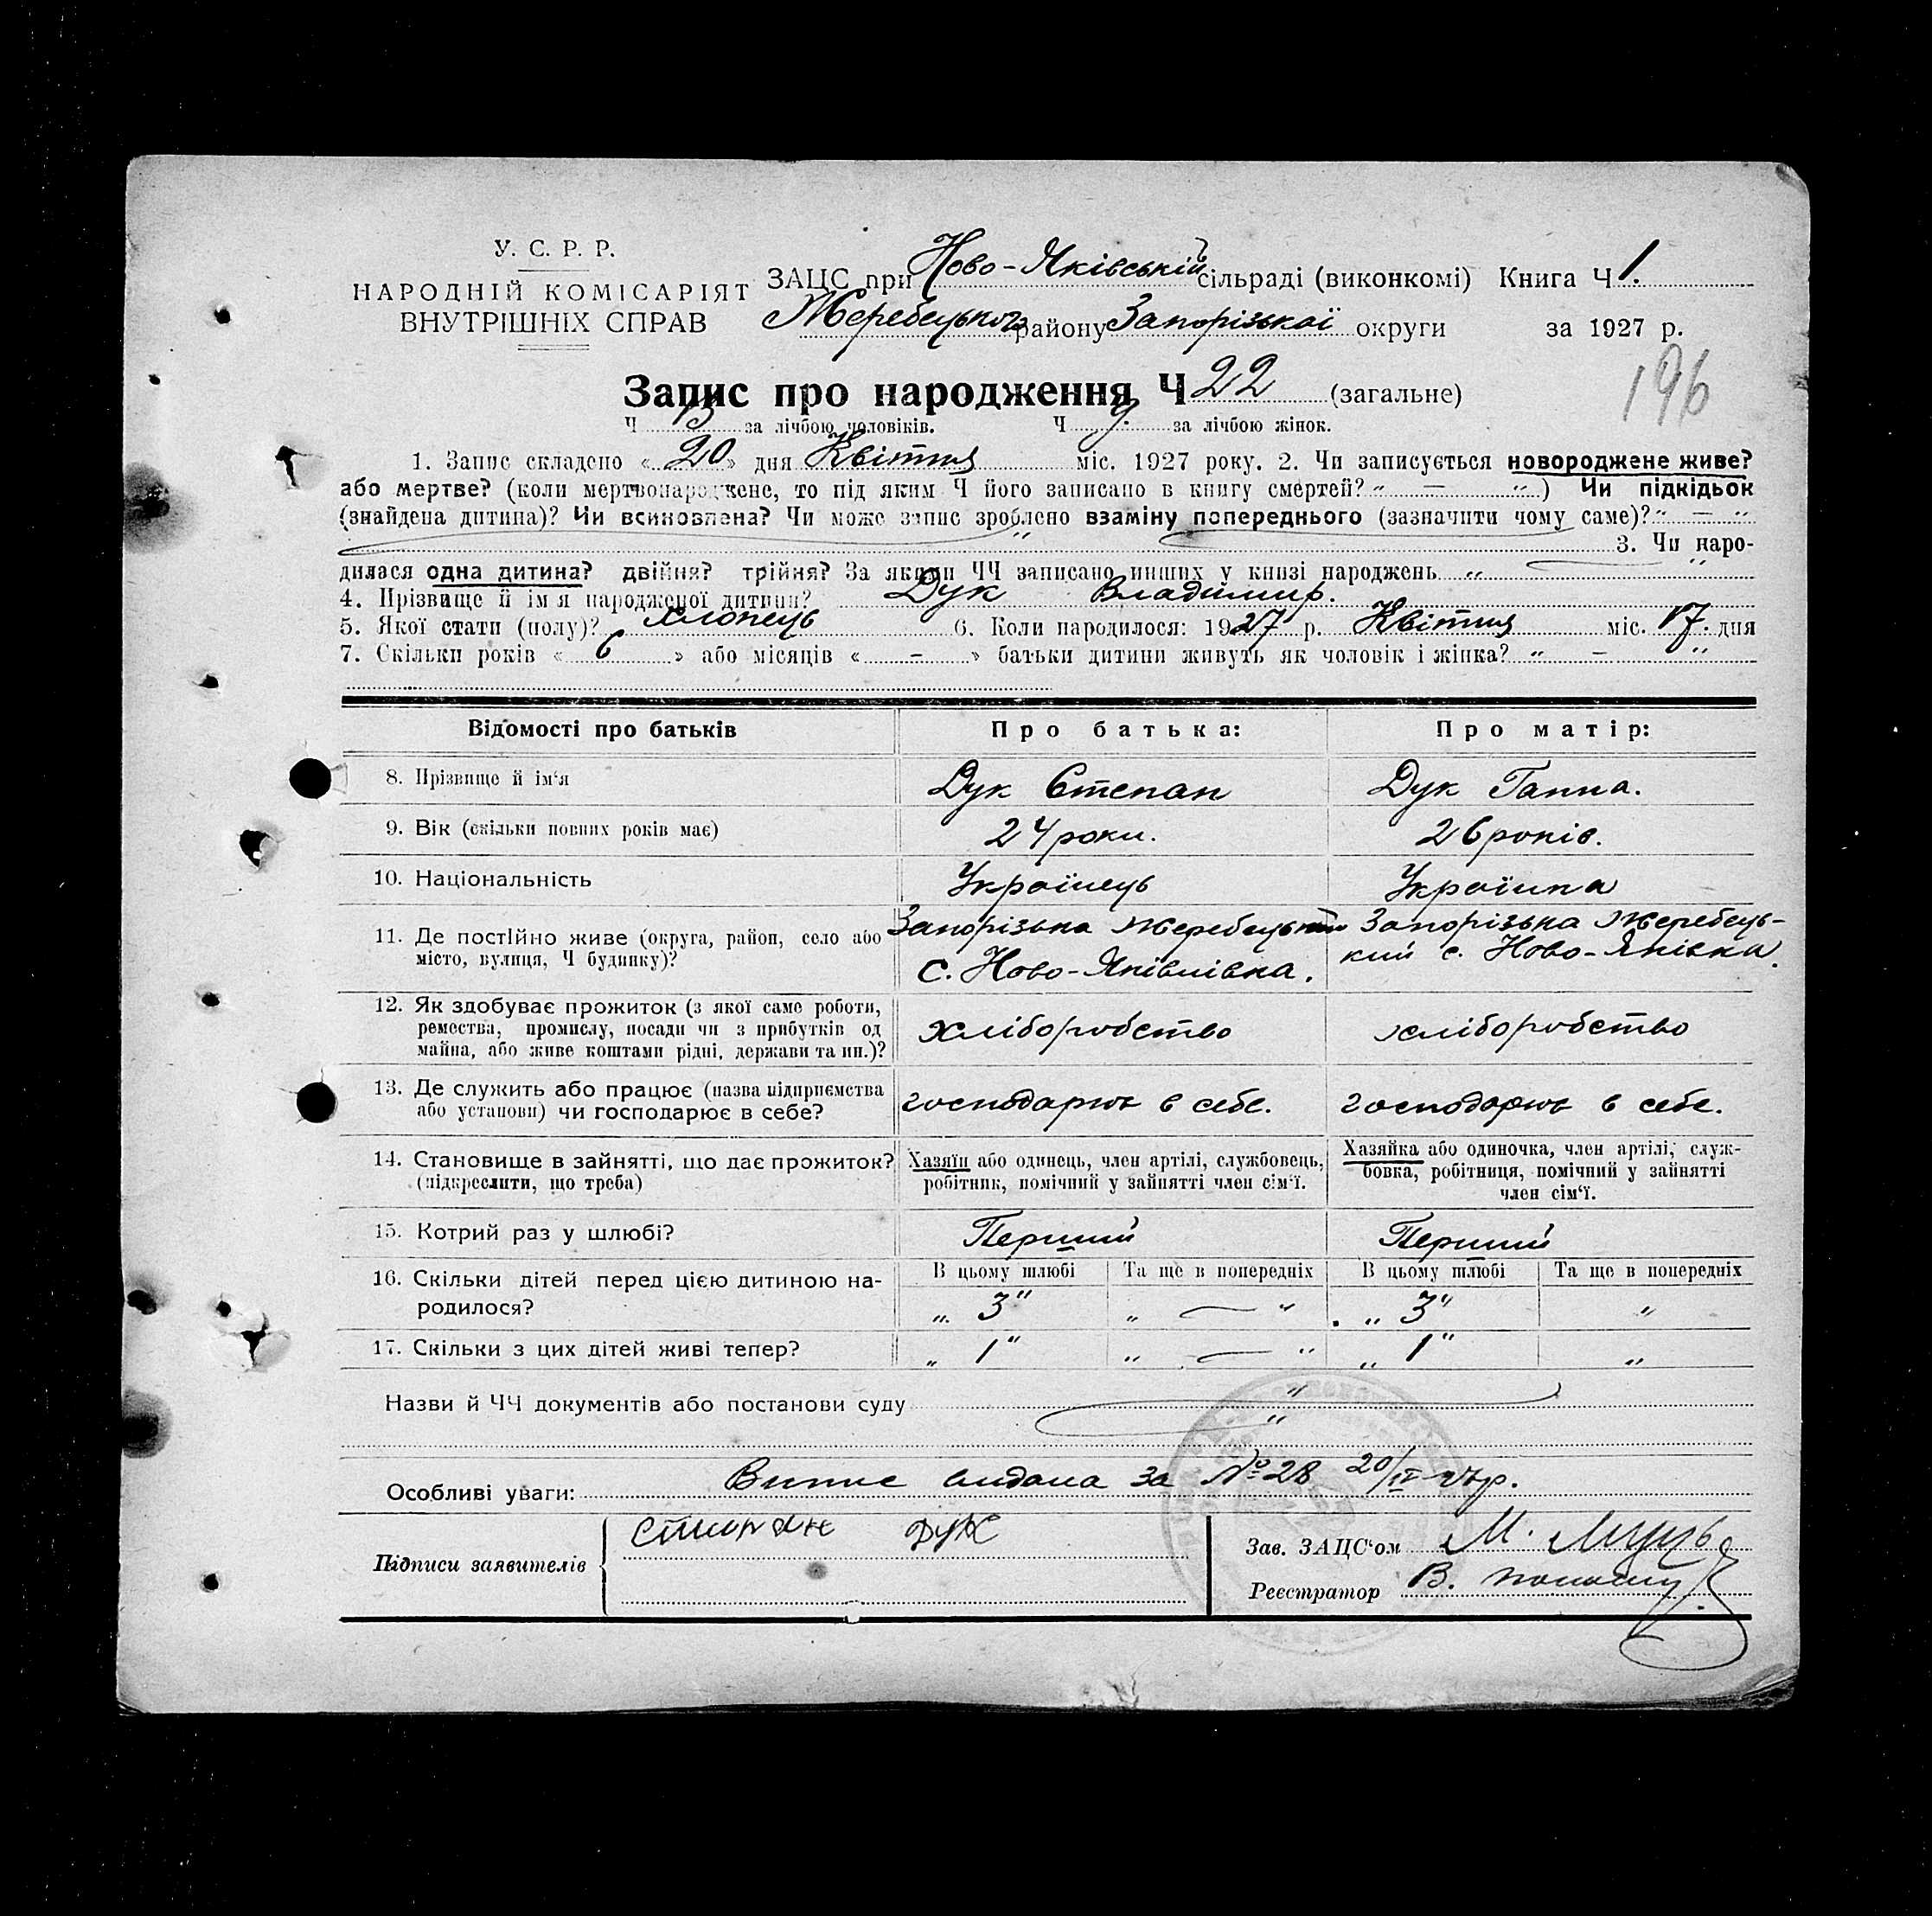 У. С. Р. Р.
НАРОДНІЙ КОМІСАРІЯТ
ВНУТРІШНІХ СПРАВ
ЗАЦС при Ново-Яківській сільраді (виконкомі) Книга Ч 1.
Жеребецького району Запорізької округи за 1927 р.
196
Запис про народження Ч 22 (загальне)
Ч 13 за лічбою чоловіків. Ч 9. за лічбою жінок.
1. Запис складено « 20 » дня Квітня міс. 1927 року. 2. Чи записується новороджене живе?
або мертве? (коли мертвонароджене, то під яким Ч його записано в книгу смертей? „ — “) Чи підкідьок
(знайдена дитина)? Чи всиновлена? Чи може запис зроблено взаміну попереднього (зазначити чому саме)? „ — “
3. Чи наро-
дилася одна дитина? двійня? трійня? За якими ЧЧ записано инших у книзі народжень „ “
4. Прізвище й ім'я народженої дитини? Дук Владимир.
5. Якої стати (полу)? хлопець 6. Коли народилося: 1927 р. Квітня міс. 17. дня
7. Скільки років « 6 » або місяців « - » батьки дитини живуть як чоловік і жінка? „ — “
Відомості про батьків Про батька: Про матір:
8. Прізвище й ім'я Дук Степан Дук Ганна.
9. Вік (скільки повних років має) 24 роки. 26 років.
10. Національність Українець Українка
11. Де постійно живе (округа, район, село або місто, вулиця, Ч будинку)? Запорізька Жеребецький Запорізька Жеребець-
с. Ново-Яківлівка. кий с. Ново-Яківка.
12. Як здобуває прожиток (з якої саме роботи,
ремества, промислу, посади чи з прибутків од
майна, або живе коштами рідні, держави та ин.)? хліборобство хліборобство
13. Де служить або працює (назва підприємства
або установи) чи господарює в себе? господарює в себе. господарює в себе.
14. Становище в зайнятті, що дає прожиток?
(підкреслити, що треба)
Хазяїн або одинець, член артілі, службовець,
робітник, помічний у зайнятті член сім'ї.
Хазяйка або одиночка, член артілі, служ-
бовка, робітниця, помічний у зайнятті
член сім'ї.
15. Котрий раз у шлюбі? Перший Перший
В цьому шлюбі Та ще в попередніх В цьому шлюбі Та ще в попередніх
16. Скільки дітей перед цією дитиною на-
родилося? „ 3 “ „ — “ „ 3 “ „
17. Скільки з цих дітей живі тепер? „ 1 “ „ — “ „ 1 “ „
Назви й ЧЧ документів або постанови суду „
„
Особливі уваги: Випис видана за № 28 20/IV-27р.
Підписи заявителів Дук
Зав. ЗАЦС'ом М.
Реєстратор В.